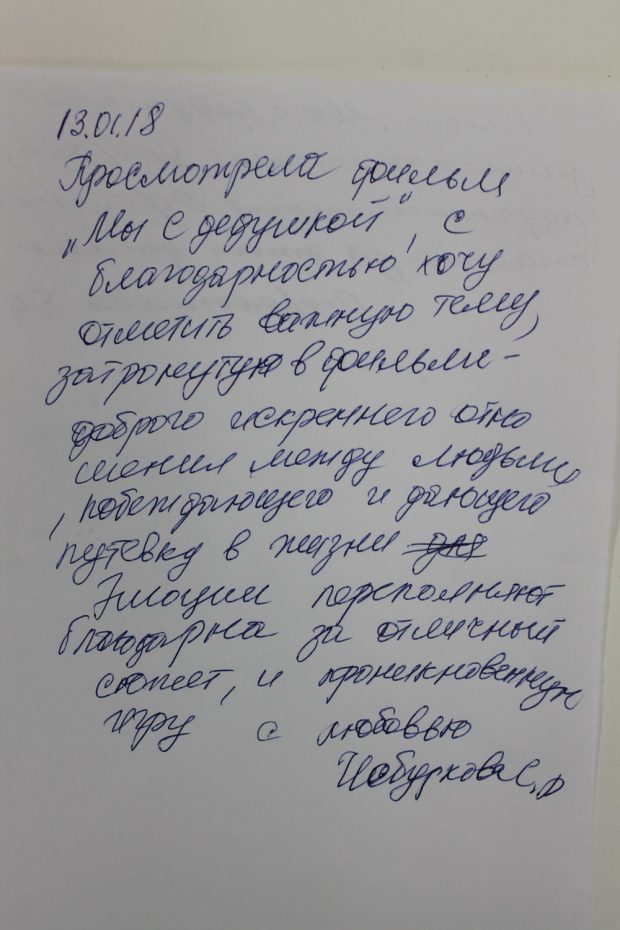 13.01.18
Просмотрела фильм
„Мы с дедушкой“, с
благодарностью хочу
отметить важную тему,
затронутую в фильми –
доброго искреннего отно
шения между людьми
, побеждающего и дающего
путевку в жизни
Эмоции переполняют
благодарна за отличный
сюжет, и проникновенную
игру с любовью